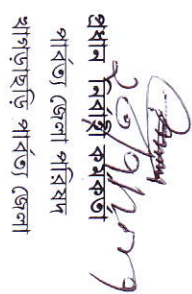 প্রধান নির্বাহী কর্মকর্তা
পার্বত্য জেলা পরিষদ
খাগড়াছড়ি পার্বত্য জেলা